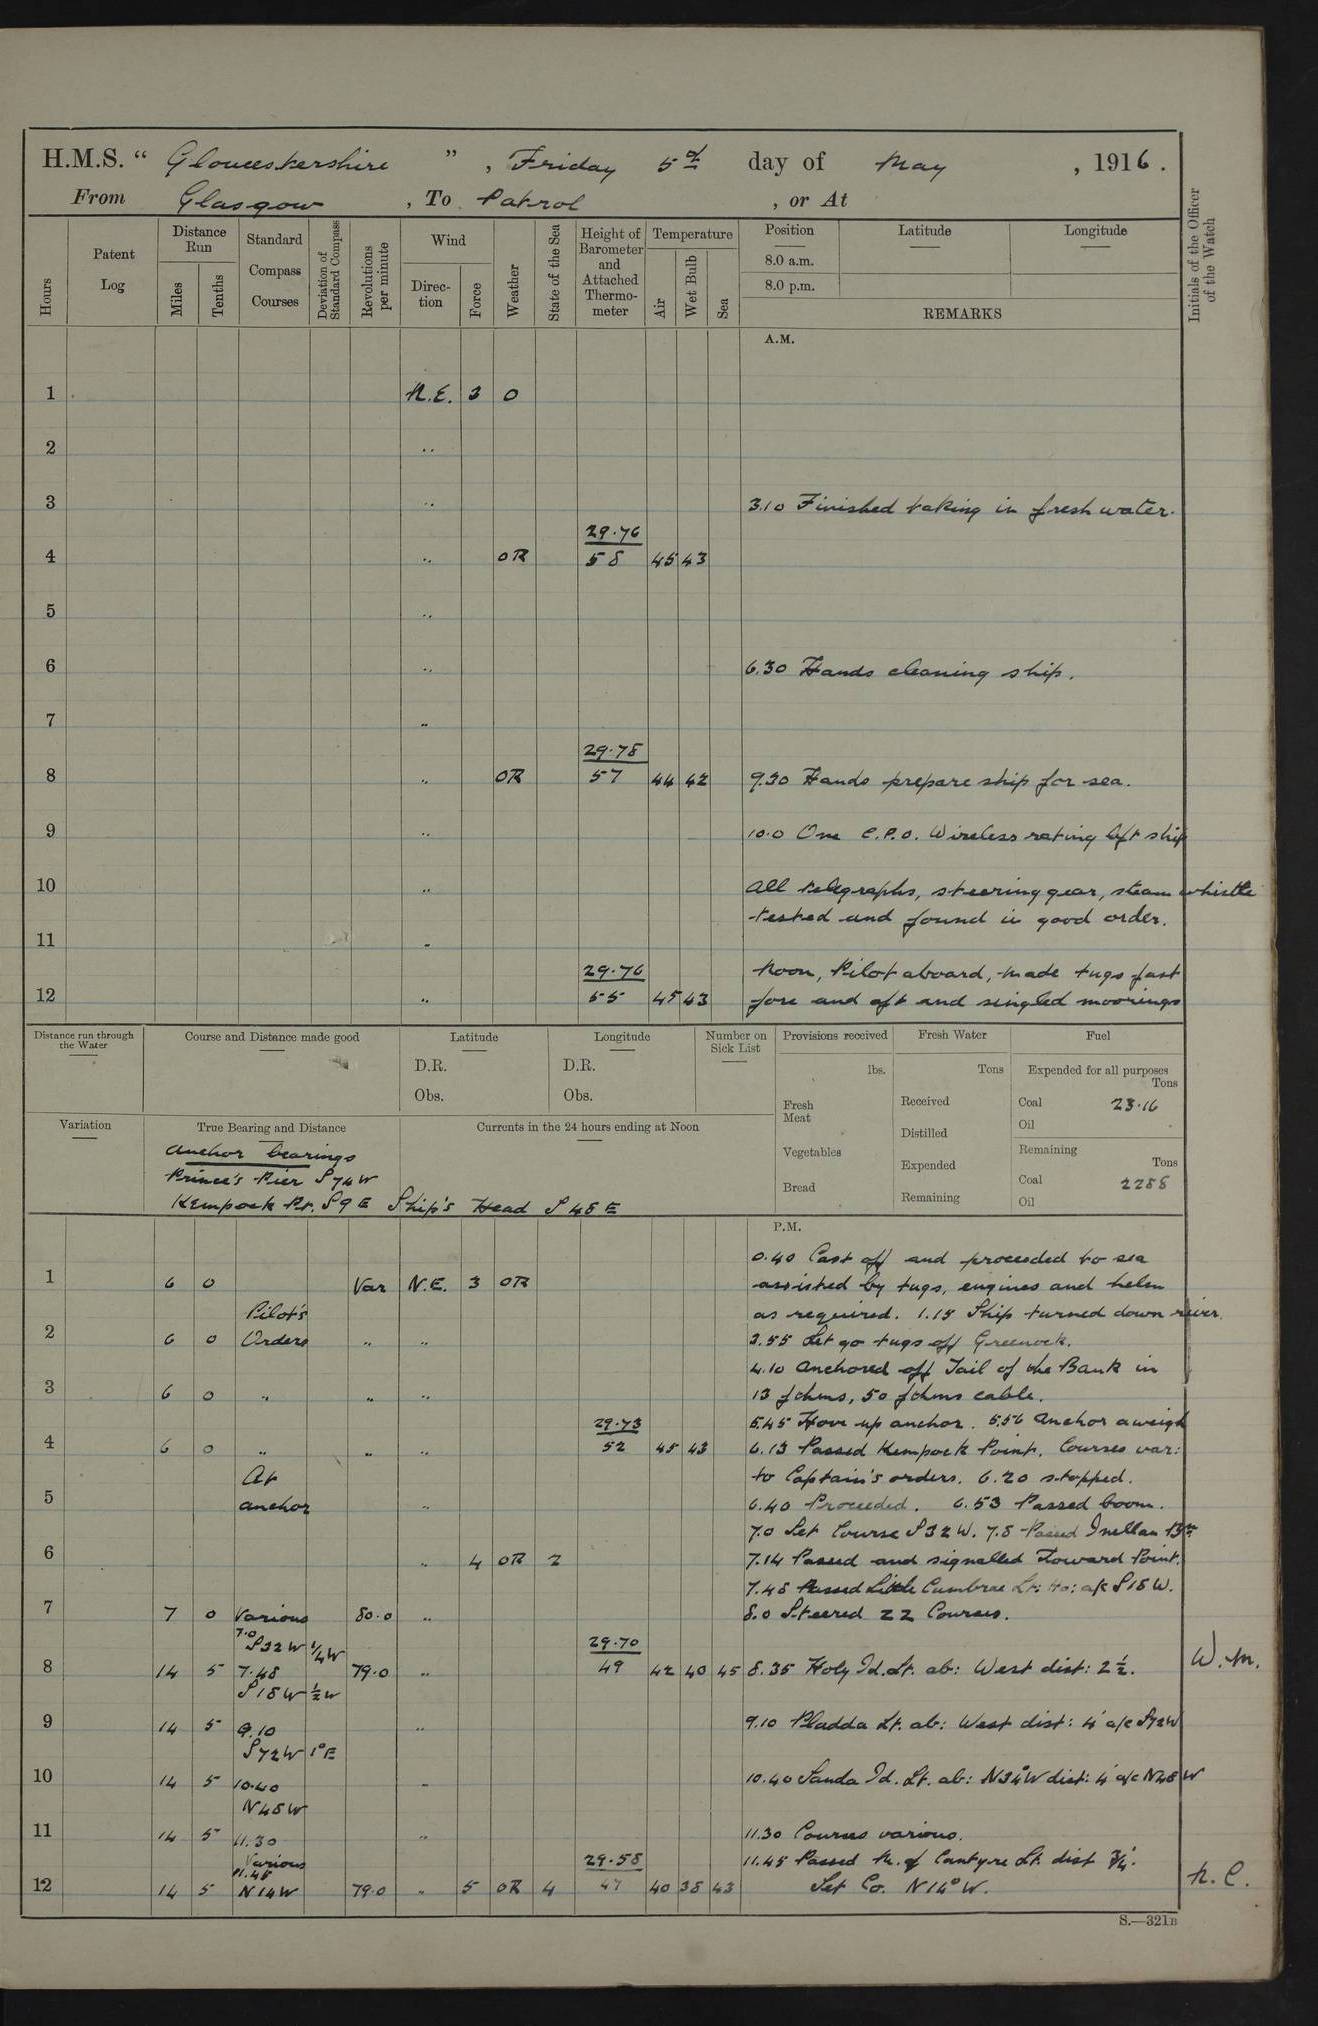 H.M.S. “ Gloucestershire ” , Friday 5th day of May , 1916 .
From Glasgow , To Patrol , or At
Hours
Patent Log
Distance Run
Miles
Tenths
Standard Compass Courses
Deviation of Standard Compass
Revolutions per minute
Wind
Direction
Force
Weather
State of the Sea
Height of Barometer and Attached Thermometer
Temperature
Air
Wet Bulb
Sea
Position
Latitude
Longitude
8.0 a.m.
8.0 p.m.
REMARKS
Initials of the Officer of the Watch
A.M.
1 N.E. 3 O
2 ..
3 .. 3.10 Finished taking in fresh water.
29.76
4 .. OR 58 45 43
5 ..
6 .. 6.30 Hands cleaning ship.
7 ..
29.78
8 .. OR 57 44 42 9.30 Hands prepare ship for sea.
9 .. 10.0 One C.P.O. Wireless rating left ship
10 .. All telegraphs, steering gear, steam whistle
tested and found in good order.
11 ..
29.76 Noon, Pilot aboard, made tugs fast
12 .. 55 45 43 fore and aft and singled moorings
Distance run through the Water
Course and Distance made good
Latitude
D.R.
Obs.
Longitude
D.R.
Obs.
Number on Sick List
Provisions received
lbs.
Fresh Meat
Vegetables
Bread
Fresh Water
Tons
Received
Distilled
Expended
Remaining
Fuel
Expended for all purposes
Tons
Coal 23.16
Oil
Remaining
Tons
Coal 2288
Oil
Variation
True Bearing and Distance
Currents in the 24 hours ending at Noon
Anchor bearings
Prince's Pier S74W
Kempock Pt. S9E Ship's Head S45E
P.M.
0.40 Cast off and proceeded to sea
1 6 0 Var N.E. 3 OR assisted by tugs, engines and helm
Pilot's as required. 1.15 Ship turned down river.
2 6 0 Orders .. .. 3.55 Let go tugs off Greenock.
4.10 Anchored off Tail of the Bank in
3 6 0 .. .. .. 13 fthms, 50 fthms cable.
29.73 5.45 Hove up anchor. 5.56 Anchor aweigh
4 6 0 .. .. .. 52 45 43 6.13 Passed Kempock Point. Courses var:
At to Captain's orders. 6.20 stopped.
5 anchor .. 6.40 Proceeded. 6.53 Passed boom.
7.0 Set Course S32W. 7.8 Passed Inellan Bn
6 .. 4 OR 2 7.14 Passed and signalled Toward Point.
7.48 Passed Little Cumbrae Lt: Ho: a/c S18W.
7 7 0 Various 80.0 .. 8.0 Steered 22 Courses.
7.0
S32W ¼W 29.70
8 14 5 7.48 79.0 .. 49 42 40 45 8.35 Holy Id. Lt. ab: West dist: 2½. W.M.
S18W ½W
9 14 5 9.10 .. 9.10 Pladda Lt. ab: West dist: 4' a/c S72W
S72W 1°E
10 14 5 10.40 .. 10.40 Sanda Id. Lt. ab: N34°W dist: 4' a/c N48W
N48W
11 14 5 11.30 .. 11.30 Courses various.
Various 29.58 11.45 Passed M. of Cantyre Lt. dist ¾'.
11.45
12 14 5 N14W 79.0 .. 5 OR 4 47 40 38 43 Set Co. N14°W. N.C.
S.—321B